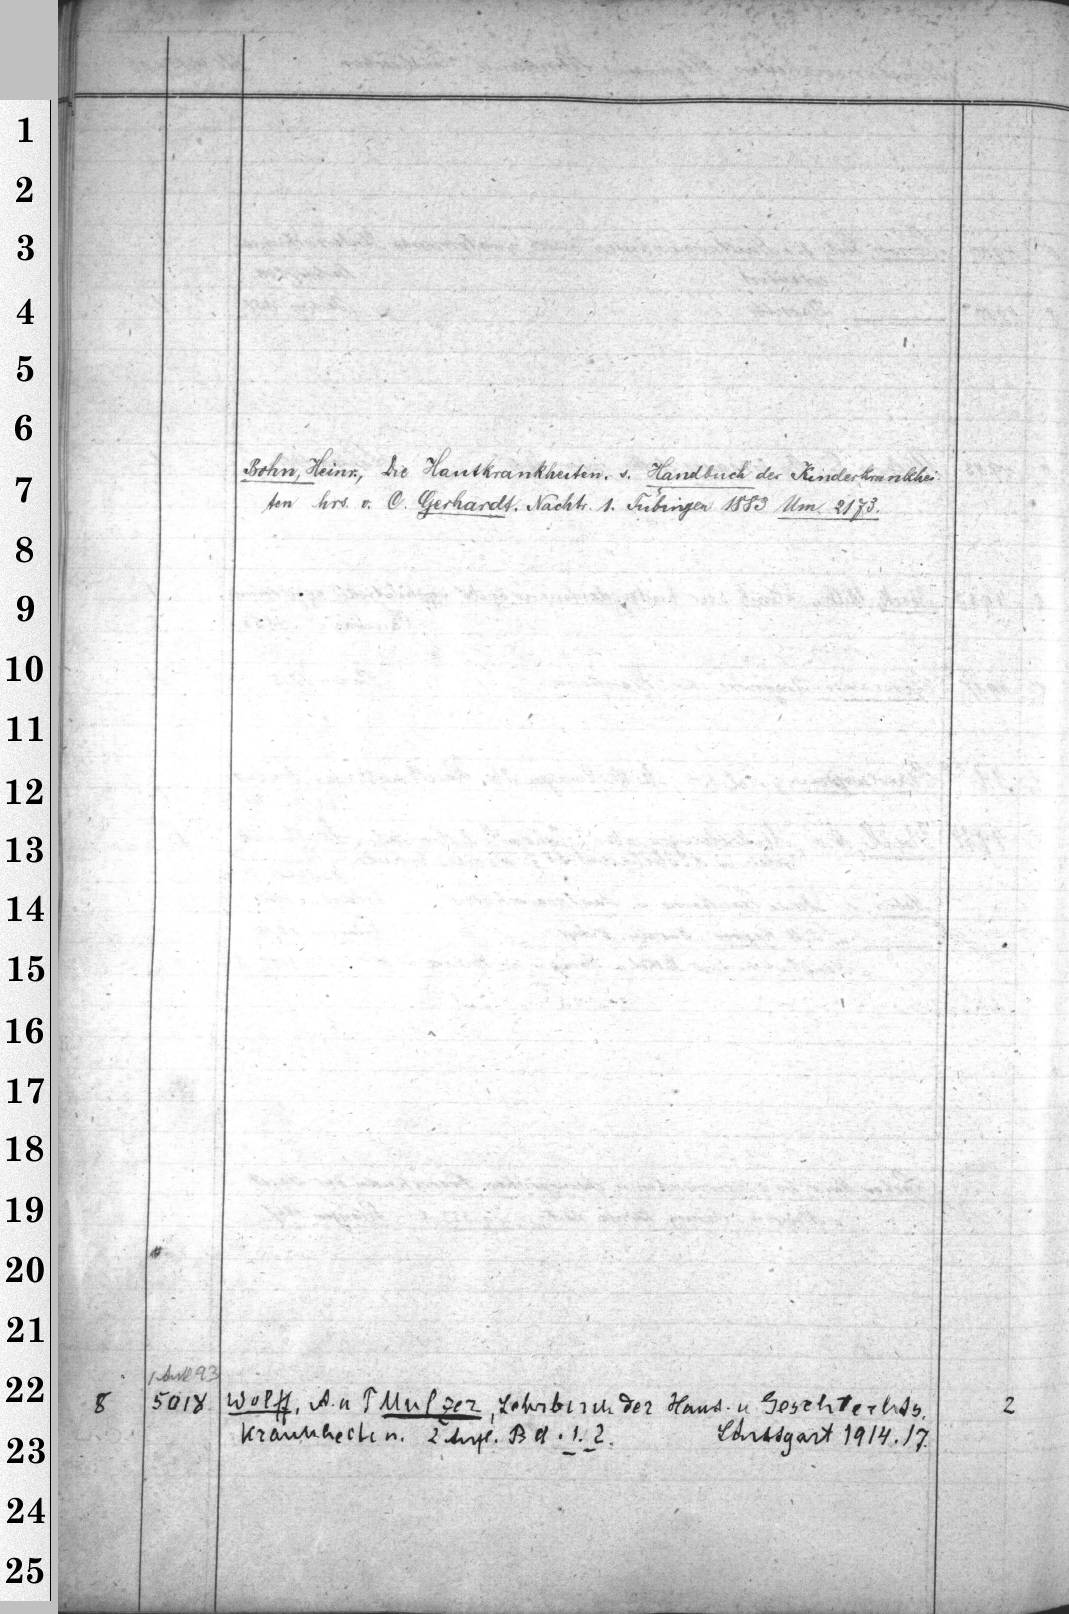 1
2
3
4
5
6
7
8
9
10
11
12
13
14
15
16
17
18
19
20
21
22
23
24
25
Bohn, Heinr., Die Hautkrankheiten. s. Handbuch der Kinderkrankhei-
ten hrs. v. C. Gerhardt. Nachtr. 1. Tübingen 1883 Um 2173.
93
8 5018 Wolff, A. u P Mulzer, Lehrbuch der Haut- u Geschlechts-
krankheiten. 2 Aufl. Bd. 1. 2. Stuttgart 1914.17. 2